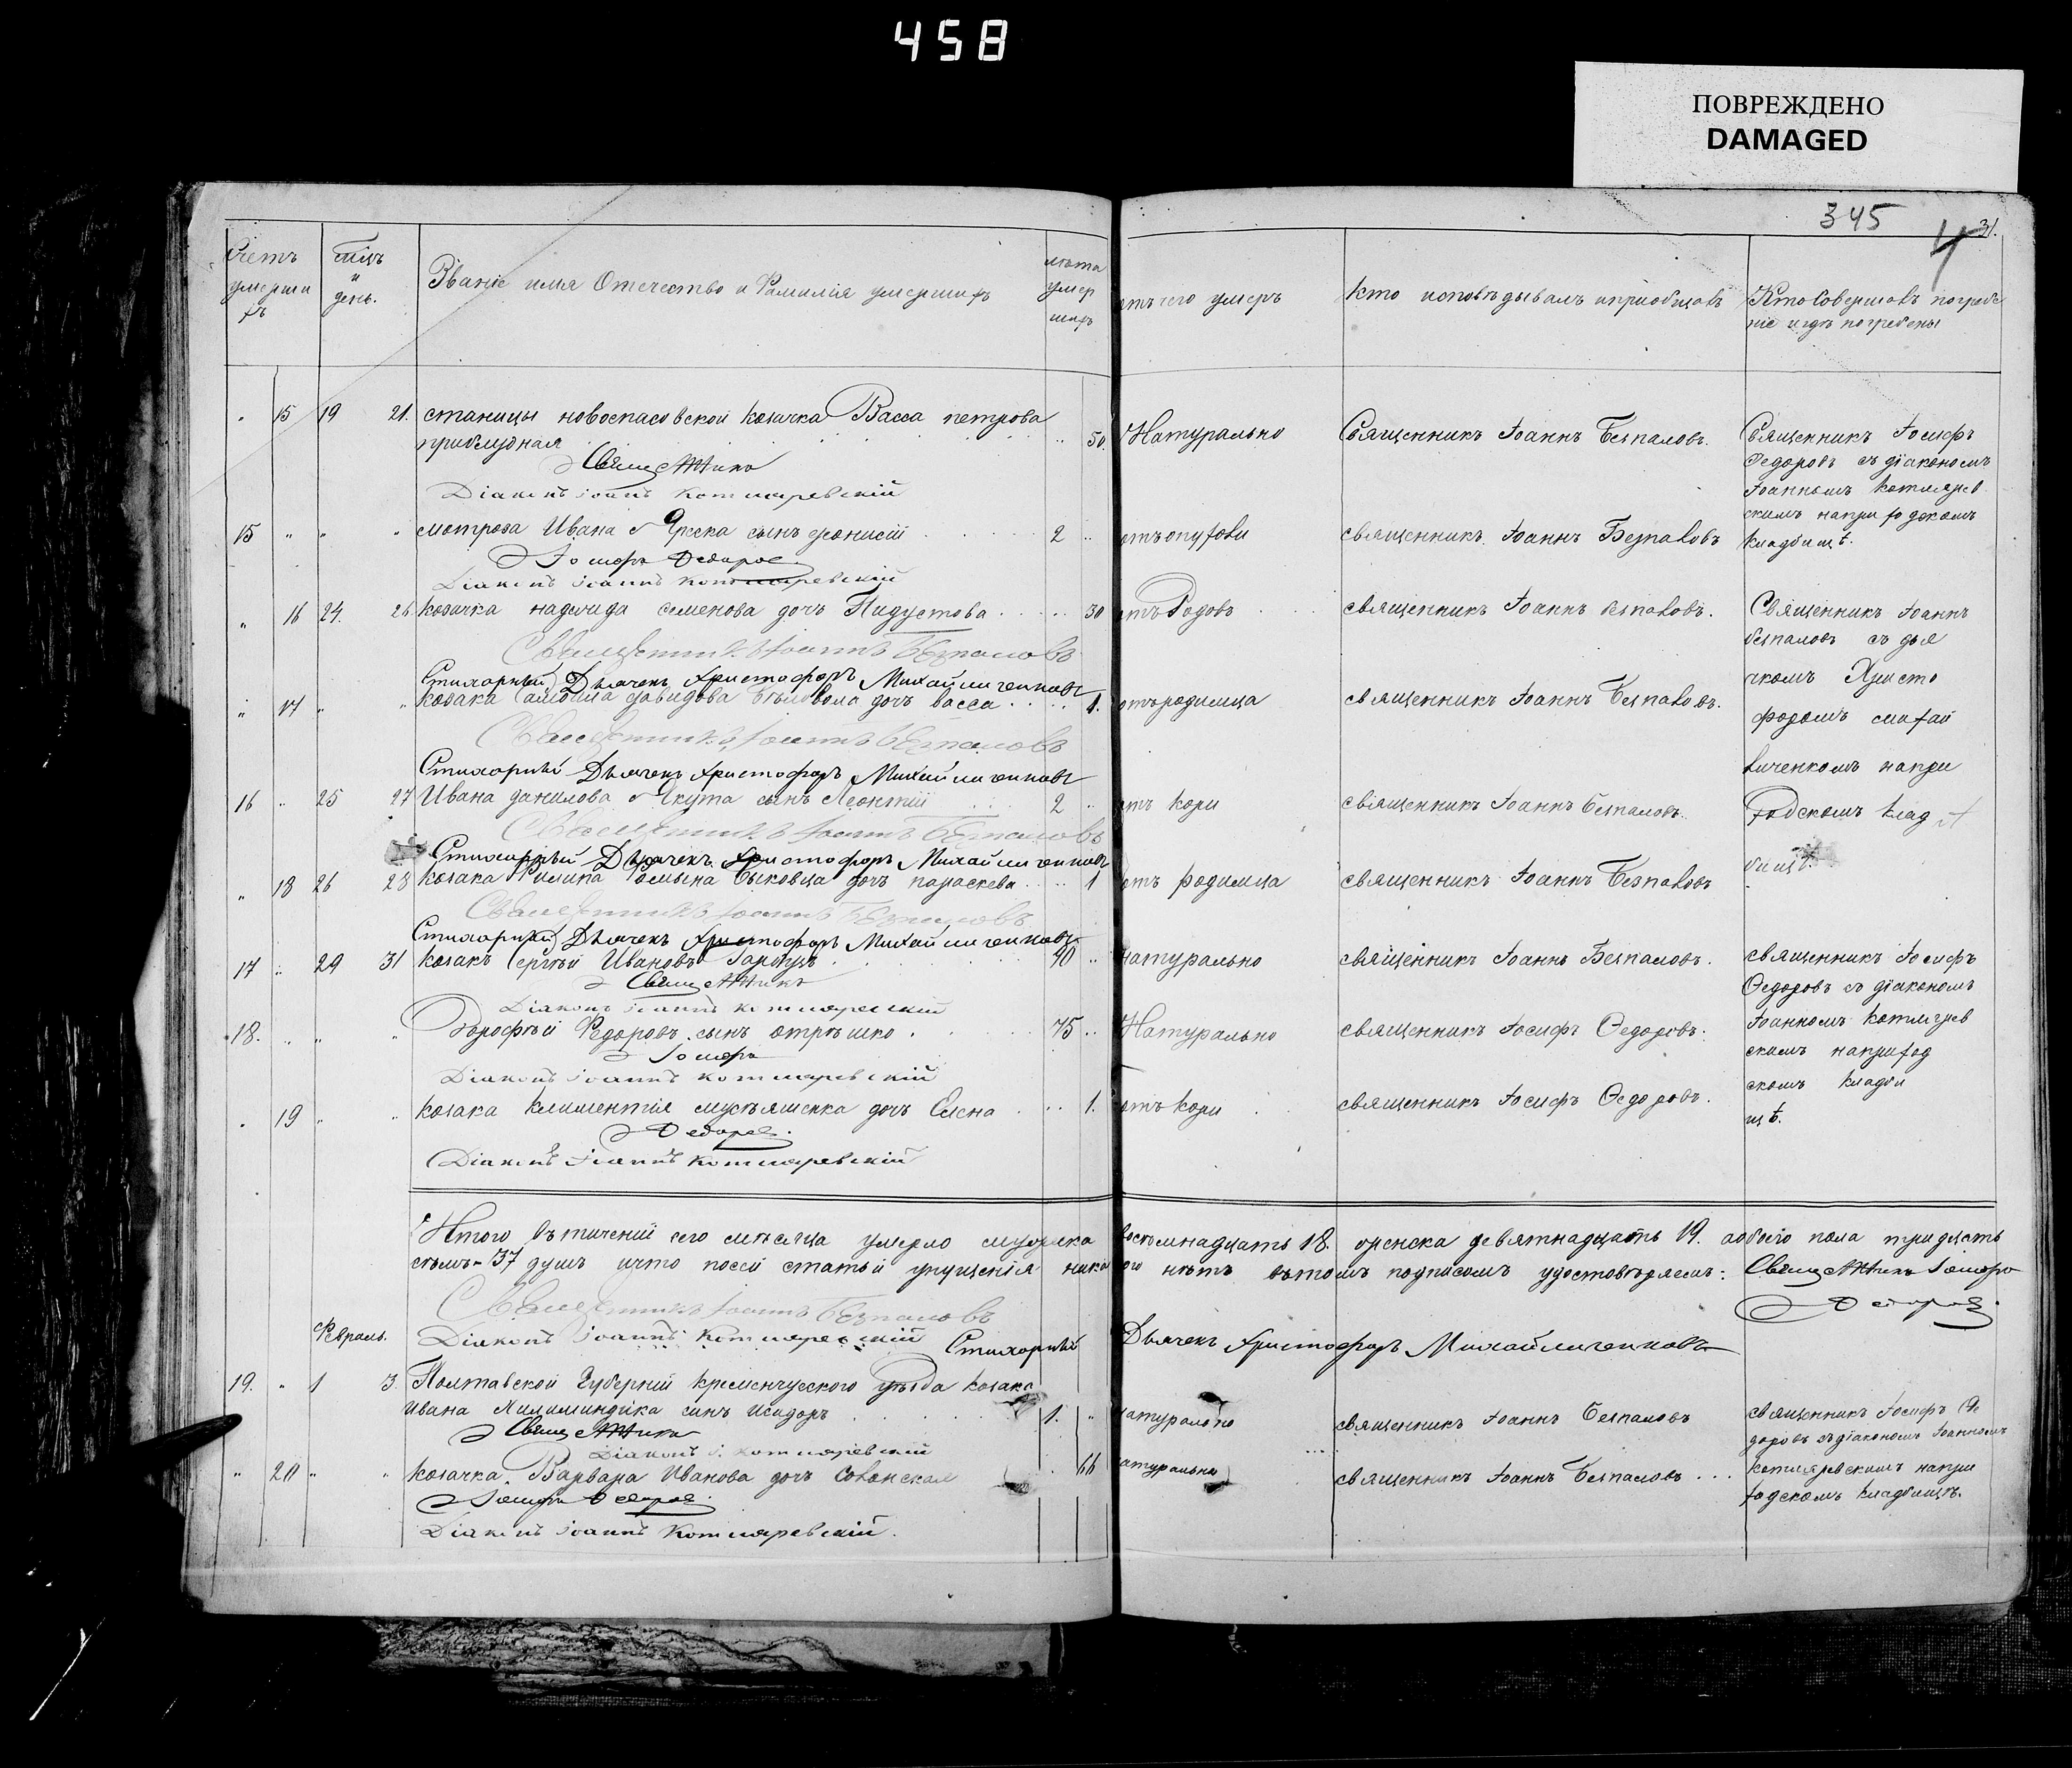 458
ПОВРЕЖДЕНО
DAMAGED
345
31.
Счетъ умершихъ
Мѣсяцъ и день.
Званіе имя Отечество и Фамилія умершихъ
лѣта умершихъ
отъ чего умеръ
Кто исповѣдывалъ и пріобщалъ
Кто совершалъ погребеніе и гдѣ погребены
15 19 21. станицы новоспасовской козачка Васса петрова
приблудная 50. Натурально Священникъ Іоаннъ Безпаловъ. Священникъ Іосифъ
Священникъ
Федоровъ съ діакономъ
Діаконъ Іоаннъ Котляревскій
Іоанномъ Котлярев
скимъ на приходскомъ
15 " " " Ивана сынъ 2 " священникъ Іоаннъ Безпаловъ кладбищѣ.
Іосифъ Федоровъ
Діаконъ Іоаннъ Котляревскій
" 16 24. 26 козачка надежда семенова дочъ 30 отъ Родовъ священникъ Іоаннъ безпаловъ. Священникъ Іоаннъ
Священникъ Іоаннъ Безпаловъ
безпаловъ съ дья
Стихарный Дьячекъ Христофоръ Михайличенковъ
чкомъ Христо
" 17 " " козака давидова дочъ васса 1. отъ родимца священникъ Іоаннъ Безпаловъ.
форомъ михай
Священникъ Іоаннъ Безпаловъ
Стихарный Дьячекъ Христофоръ Михайличенковъ
личенкомъ на при
16 " 25 27 Ивана данилова сынъ Леонтій 2 " отъ кори священникъ Іоаннъ безпаловъ.
ходскомъ клад
Священникъ Іоаннъ Безпаловъ
Стихарный Дьячекъ Христофоръ Михайличенковъ
бищѣ.
" 18 26 28 козака Быковца дочъ параскева 1 отъ родимца священникъ Іоаннъ Безпаловъ
Священникъ Іоаннъ Безпаловъ
Стихарный Дьячекъ Христофоръ Михайличенковъ
17 " 29 31 козакъ Сергѣй Ивановъ 90 " натурально священникъ Іоаннъ Безпаловъ. священникъ Іосифъ
Священникъ
Федоровъ съ діакономъ
Діаконъ Іоаннъ Котляревскій
18. " " " Федоровъ сынъ 75 " Натурально священникъ Іосифъ Федоровъ. Іоанномъ котлярев
Іосифъ
скимъ на приход
Діаконъ Іоаннъ Котляревскій
скомъ кладби
19 " " козака климентія дочъ Елена 1. отъ кори священникъ Іосифъ Федоровъ.
щѣ.
Федоровъ.
Діаконъ Іоаннъ Котляревскій
Итого въ теченіи сего мѣсяца умерло мужеска восѣмнадцать 18. женска девятнадцать 19. а обоего пола тридцать
семъ 37 душъ и что по сей статьи упущенія никакого нѣтъ въ томъ подписомъ удостовѣряемъ: Священникъ Іосифъ
Священникъ Іоаннъ Безпаловъ
Федоровъ.
Февраль.
Діаконъ Іоаннъ Котляревскій Стихарный Дьячекъ Христофоръ Михайличенковъ
19. " 1 3. Полтавской Губерніи Кременчугского уѣзда козака
Ивана сынъ Исидоръ 1. " натурально священникъ Іоаннъ безпаловъ священникъ Іосифъ Фе
Священникъ
доровъ съ діакономъ Іоанномъ
Діаконъ І. Котляревскій
" 20 " " козачка Варвара Иванова дочъ 66 натурально священникъ Іоаннъ Безпаловъ котляревскимъ на при
Іосифъ Федоровъ
ходскомъ кладбищѣ.
Діаконъ Іоаннъ Котляревскій.